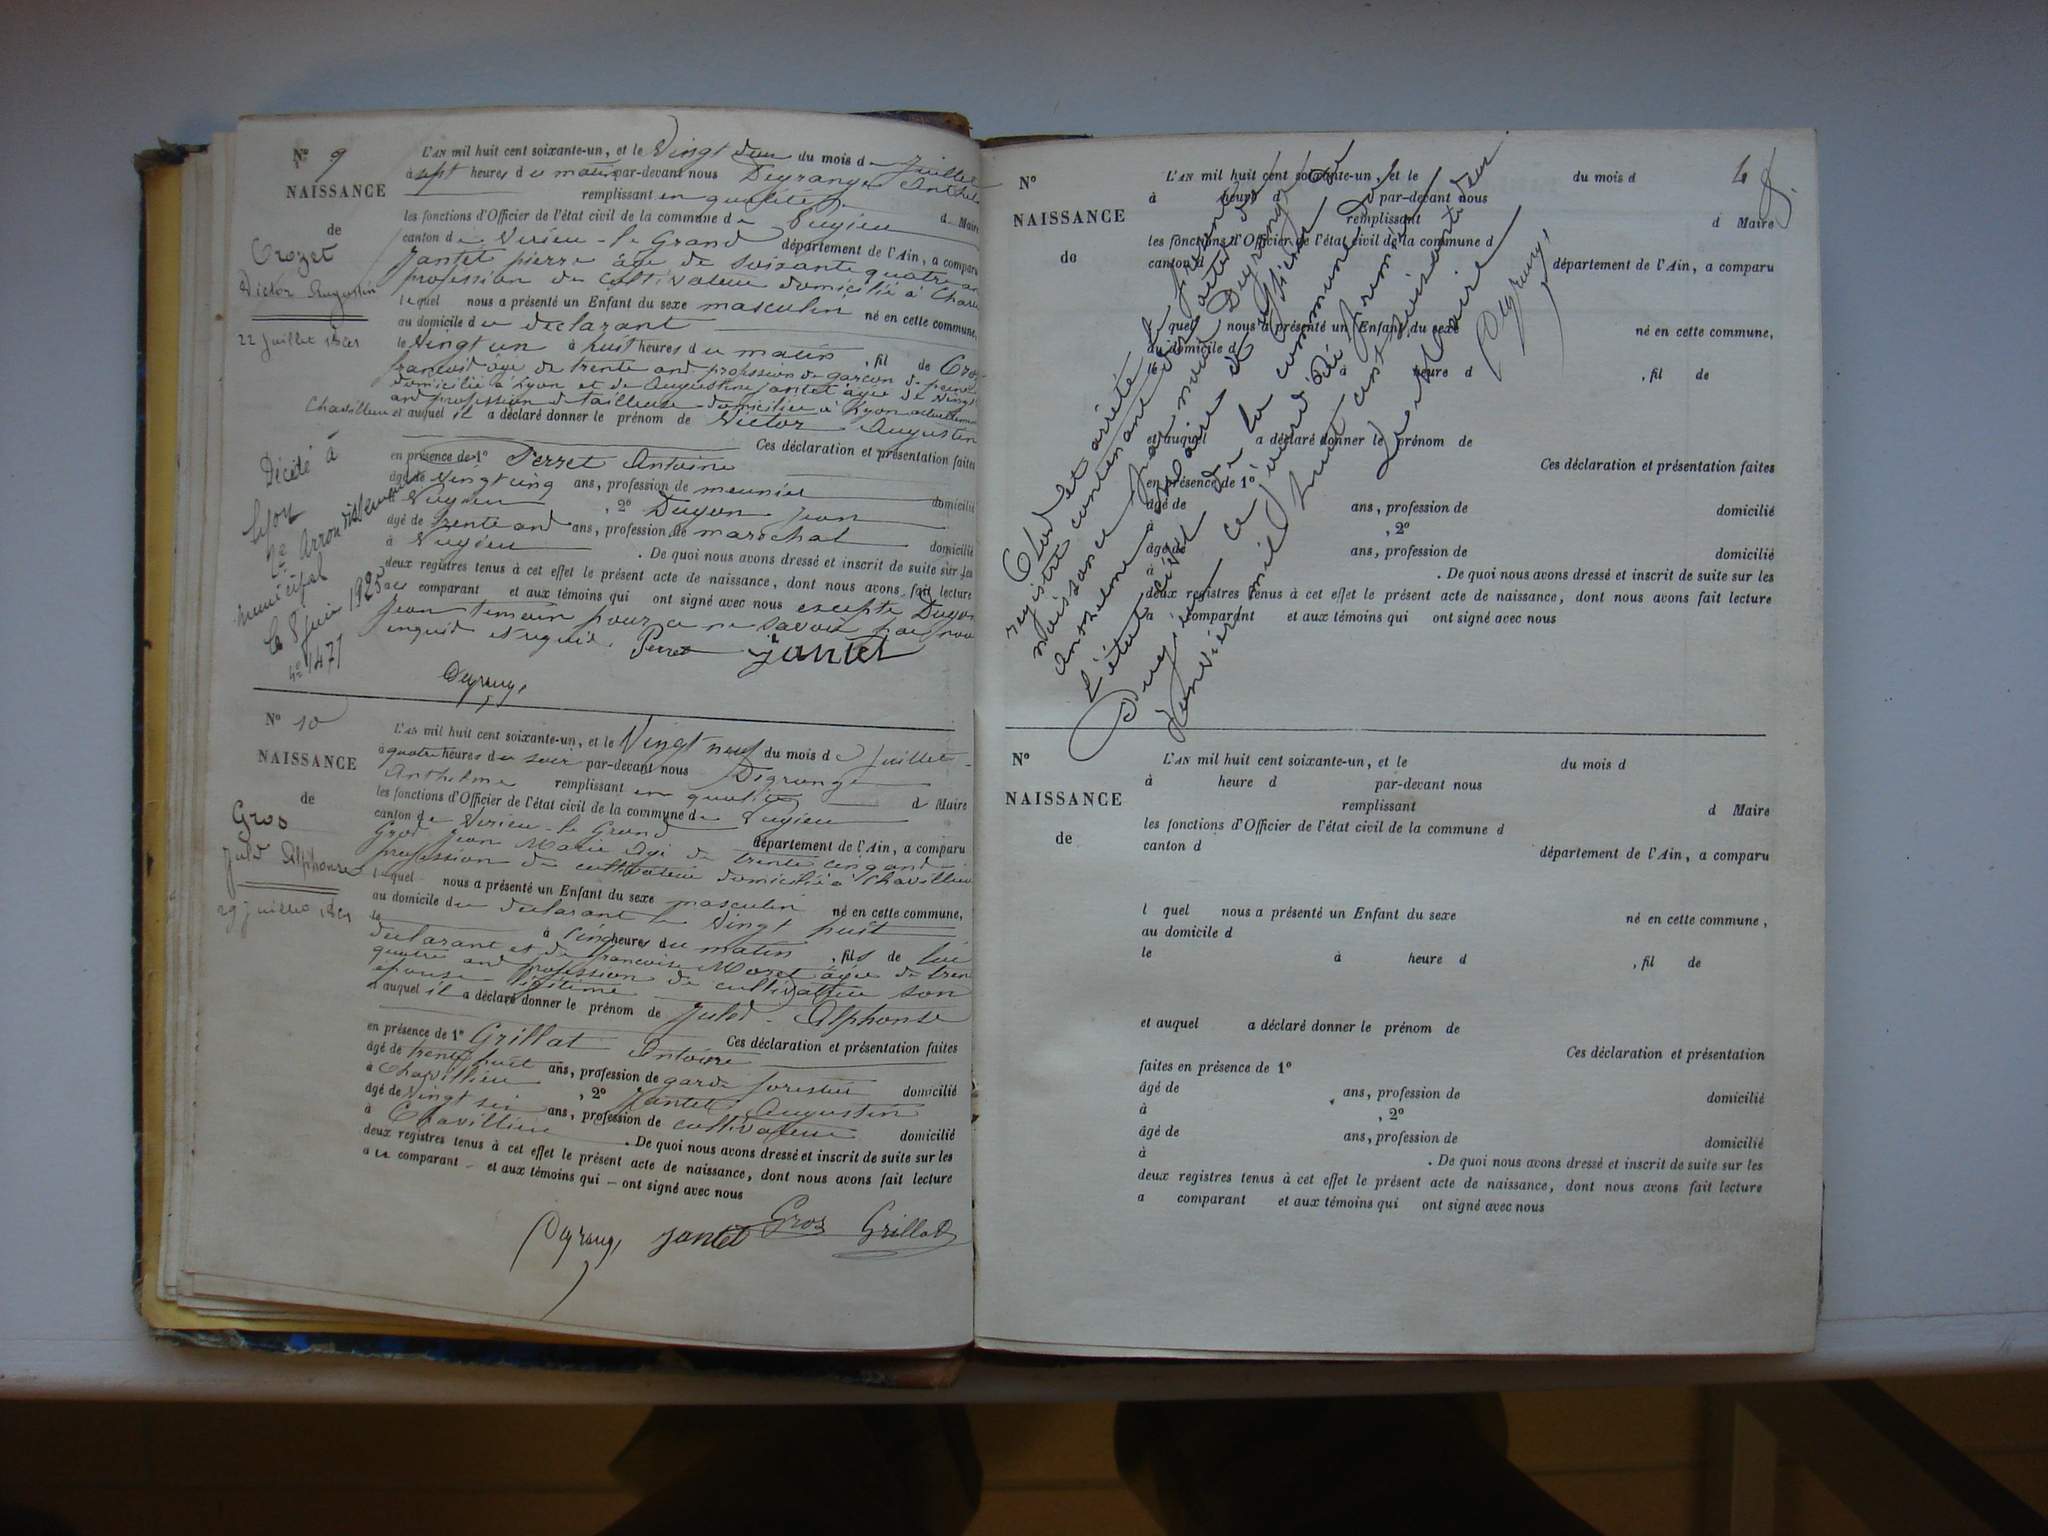 N° 9
NAISSANCE
de
Crozet
Victor Augustin
22 Juillet 1861
L'AN mil huit cent soixante-un, et le Vingt deux du mois de Juillet
à sept heures du matin par-devant nous Degrange Anthel
remplissant en qualité d Maire
les fonctions d'Officier de l'état civil de la commune de Pugieu
canton de Virieu-le-Grand département de l'Ain, a comparu
Jantet pierre âgé de soixante quatre ans
profession de cultivateur domicilié à Chavi
lequel nous a présenté un Enfant du sexe masculin né en cette commune,
au domicile du declarant
le Vingt un à huit heures du matin , fil de Cro
francois âgé de trente ans profession de garçon de peine
domicilié à Lyon et de Augustine Jantet âgée de Vingt
ans profession de tailleuse domiciliée à Lyon actuellement
Chavillieu et auquel il a déclaré donner le prénom de Victor Augustin
Ces déclaration et présentation faites
en présence de 1° Perret Antoine
âgé de Vingt cinq ans, profession de meunier domicilié
à Pugieu , 2° Dugon Jean
âgé de trente ans ans, profession de marechal domicilié
à Pugieu . De quoi nous avons dressé et inscrit de suite sur les
deux registres tenus à cet effet le présent acte de naissance, dont nous avons fait lecture
au comparant et aux témoins qui ont signé avec nous excepté Dugon
Jean temoin pour ce ne savoir par nous
enquis et requis. Perret Jantet
Degrange
Décédé à
Lyon
2e Arrondissement
municipal
le 8 Juin 1925
N° 1471
N° 10
NAISSANCE
de
Gros
Jules Alphonse
29 Juillet 1861
L'AN mil huit cent soixante-un, et le Vingt neuf du mois de Juillet
à quatre heures du soir par-devant nous Degrange
Anthelme remplissant en qualité d Maire
les fonctions d'Officier de l'état civil de la commune de Pugieu
canton de Virieu-le-Grand département de l'Ain, a comparu
Gros Jean Marie âgé de trente cinq ans
profession de cultivateur domicilié à Chavillieu
lequel nous a présenté un Enfant du sexe masculin né en cette commune,
au domicile du declarant le Vingt huit
le à cinq heures du matin , fils de lui
declarant et de francoise Moret âgée de tren
quatre ans profession de cultivateur son
épouse légitime
et auquel il a déclaré donner le prénom de Jules - Alphonse
Ces déclaration et présentation faites
en présence de 1° Grillat Antoine
âgé de trente huit ans, profession de garde forestier domicilié
à Chavillieu , 2° Jantet Augustin
âgé de Vingt six ans, profession de cultivateur domicilié
à Chavillieu . De quoi nous avons dressé et inscrit de suite sur les
deux registres tenus à cet effet le présent acte de naissance, dont nous avons fait lecture
au comparant et aux témoins qui ont signé avec nous
Degrange Jantet Gros Grillat
N°
NAISSANCE
de
L'AN mil huit cent soixante-un, et le du mois d
à heure d par-devant nous
remplissant d Maire
les fonctions d'Officier de l'état civil de la commune d
canton d département de l'Ain, a comparu
l quel nous a présenté un Enfant du sexe né en cette commune,
au domicile d
le à heure d , fil de
et auquel a déclaré donner le prénom de
Ces déclaration et présentation faites
en présence de 1°
âgé de ans, profession de domicilié
à , 2°
âgé de ans, profession de domicilié
à . De quoi nous avons dressé et inscrit de suite sur les
deux registres tenus à cet effet le présent acte de naissance, dont nous avons fait lecture
a comparant et aux témoins qui ont signé avec nous
Clos et arrêté le présent
registre contenant dix actes de
naissance par nous Degrange
Anthelme Maire et officier de
l'état civil de la commune de
Pugieu ce jourd'hui premier
Janvier mil huit cent soixante deux
Le Maire
Degrange
N°
NAISSANCE
de
L'AN mil huit cent soixante-un, et le du mois d
à heure d par-devant nous
remplissant d Maire
les fonctions d'Officier de l'état civil de la commune d
canton d département de l'Ain, a comparu
l quel nous a présenté un Enfant du sexe né en cette commune,
au domicile d
le à heure d , fil de
et auquel a déclaré donner le prénom de
Ces déclaration et présentation
faites en présence de 1°
âgé de ans, profession de domicilié
à , 2°
âgé de ans, profession de domicilié
à . De quoi nous avons dressé et inscrit de suite sur les
deux registres tenus à cet effet le présent acte de naissance, dont nous avons fait lecture
a comparant et aux témoins qui ont signé avec nous